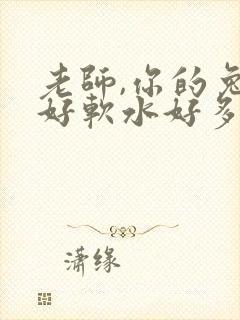 老师,你的兔
好軟水好多
潇缘